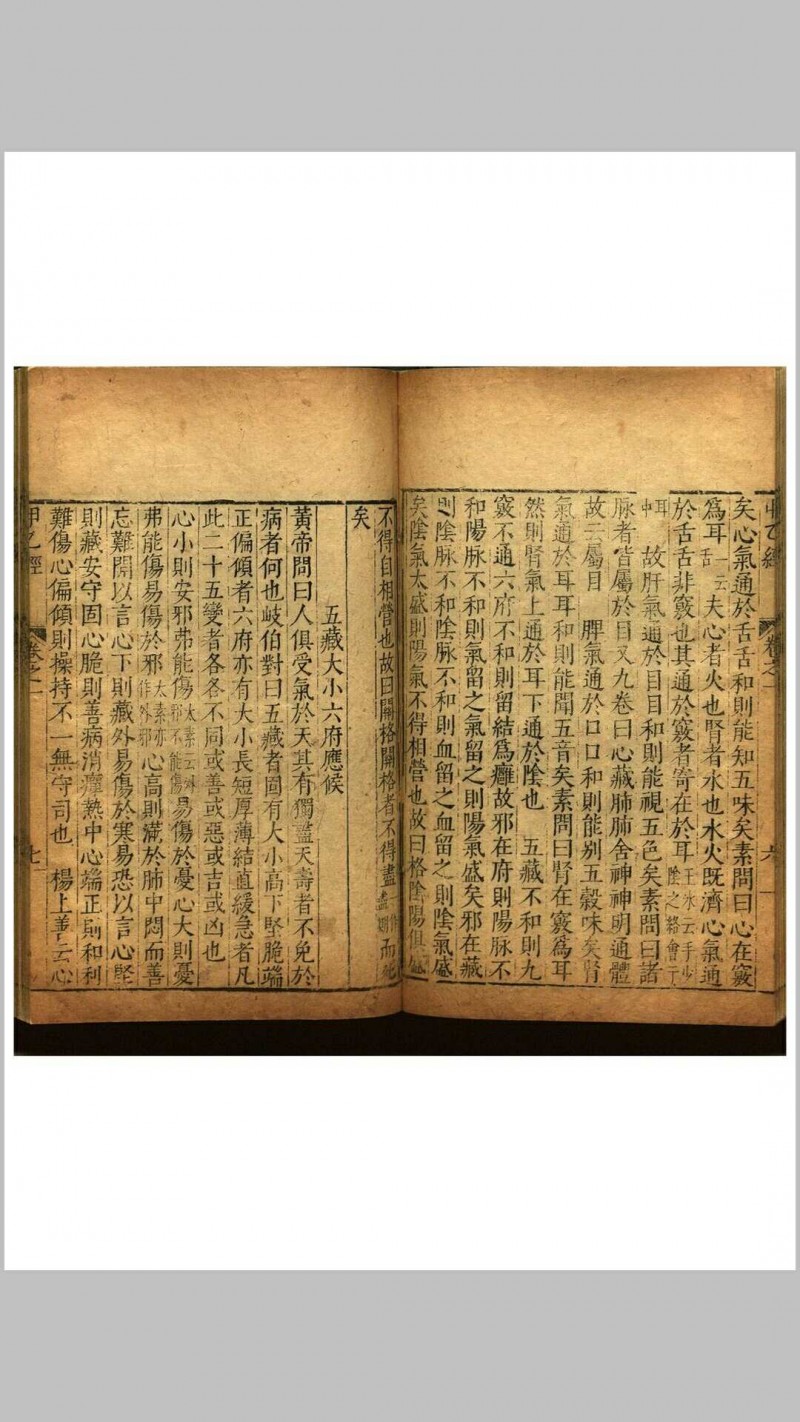 甲乙經 卷之一 六
矣心氣通於舌舌和則能知五味矣素問曰心在竅
爲耳一云舌夫心者火也腎者水也水火既濟心氣通
於舌舌非竅也其通於竅者寄在於耳王冰云手少陰之絡會于
耳中故肝氣通於目目和則能視五色矣素問曰諸
脉者皆屬於目又九卷曰心藏脉脉舍神神明通體
故云屬目 脾氣通於口口和則能别五穀味矣腎
氣通於耳耳和則能聞五音矣素問曰腎在竅爲耳
然則腎氣上通於耳下通於陰也 五藏不和則九
竅不通六府不和則留結爲癰故邪在府則陽脉不
和陽脉不和則氣留之氣留之則陽氣盛矣邪在藏
則陰脉不和陰脉不和則血留之血留之則陰氣盛
矣陰氣太盛則陽氣不得相營也故曰格陰陽俱盛
不得自相營也故曰關格關格者不得盡一作盡期而死
矣
五藏大小六府應候
黃帝問曰人俱受氣於天其有獨盡天壽者不免於
病者何也岐伯對曰五藏者固有大小高下堅脆端
正偏傾者六府亦有大小長短厚薄結直緩急者凡
此二十五變者各各不同或善或惡或吉或凶也
心小則安邪弗能傷太素云外邪不能傷易傷於憂心大則憂
弗能傷易傷於邪太素亦作外邪心高則滿於肺中悶而善
忘難開以言心下則藏外易傷於寒易恐以言心堅
則藏安守固心脆則善病消癉熱中心端正則和利
難傷心偏傾則操持不一無守司也 楊上善云心
甲乙經 卷之一 七